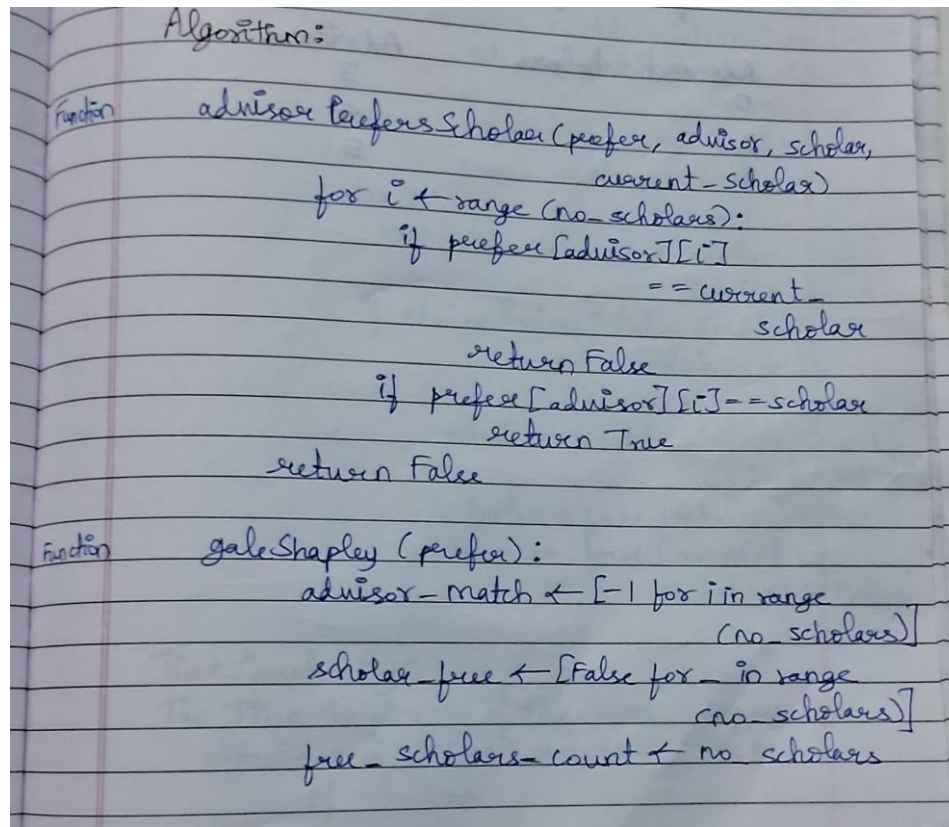 Algorithm:
Function advisorPrefersScholar (prefer, advisor, scholar,
current-scholar)
for i ← range (no-scholars):
if prefer [advisor][i]
== current-
scholar
return False
if prefer [advisor][i]==scholar
return True
return False
Function galeShapley (prefer):
advisor-match ← [-1 for i in range
(no_scholars)]
scholar-free ← [False for _ in range
(no_scholars)]
free_scholars-count ← no_scholars